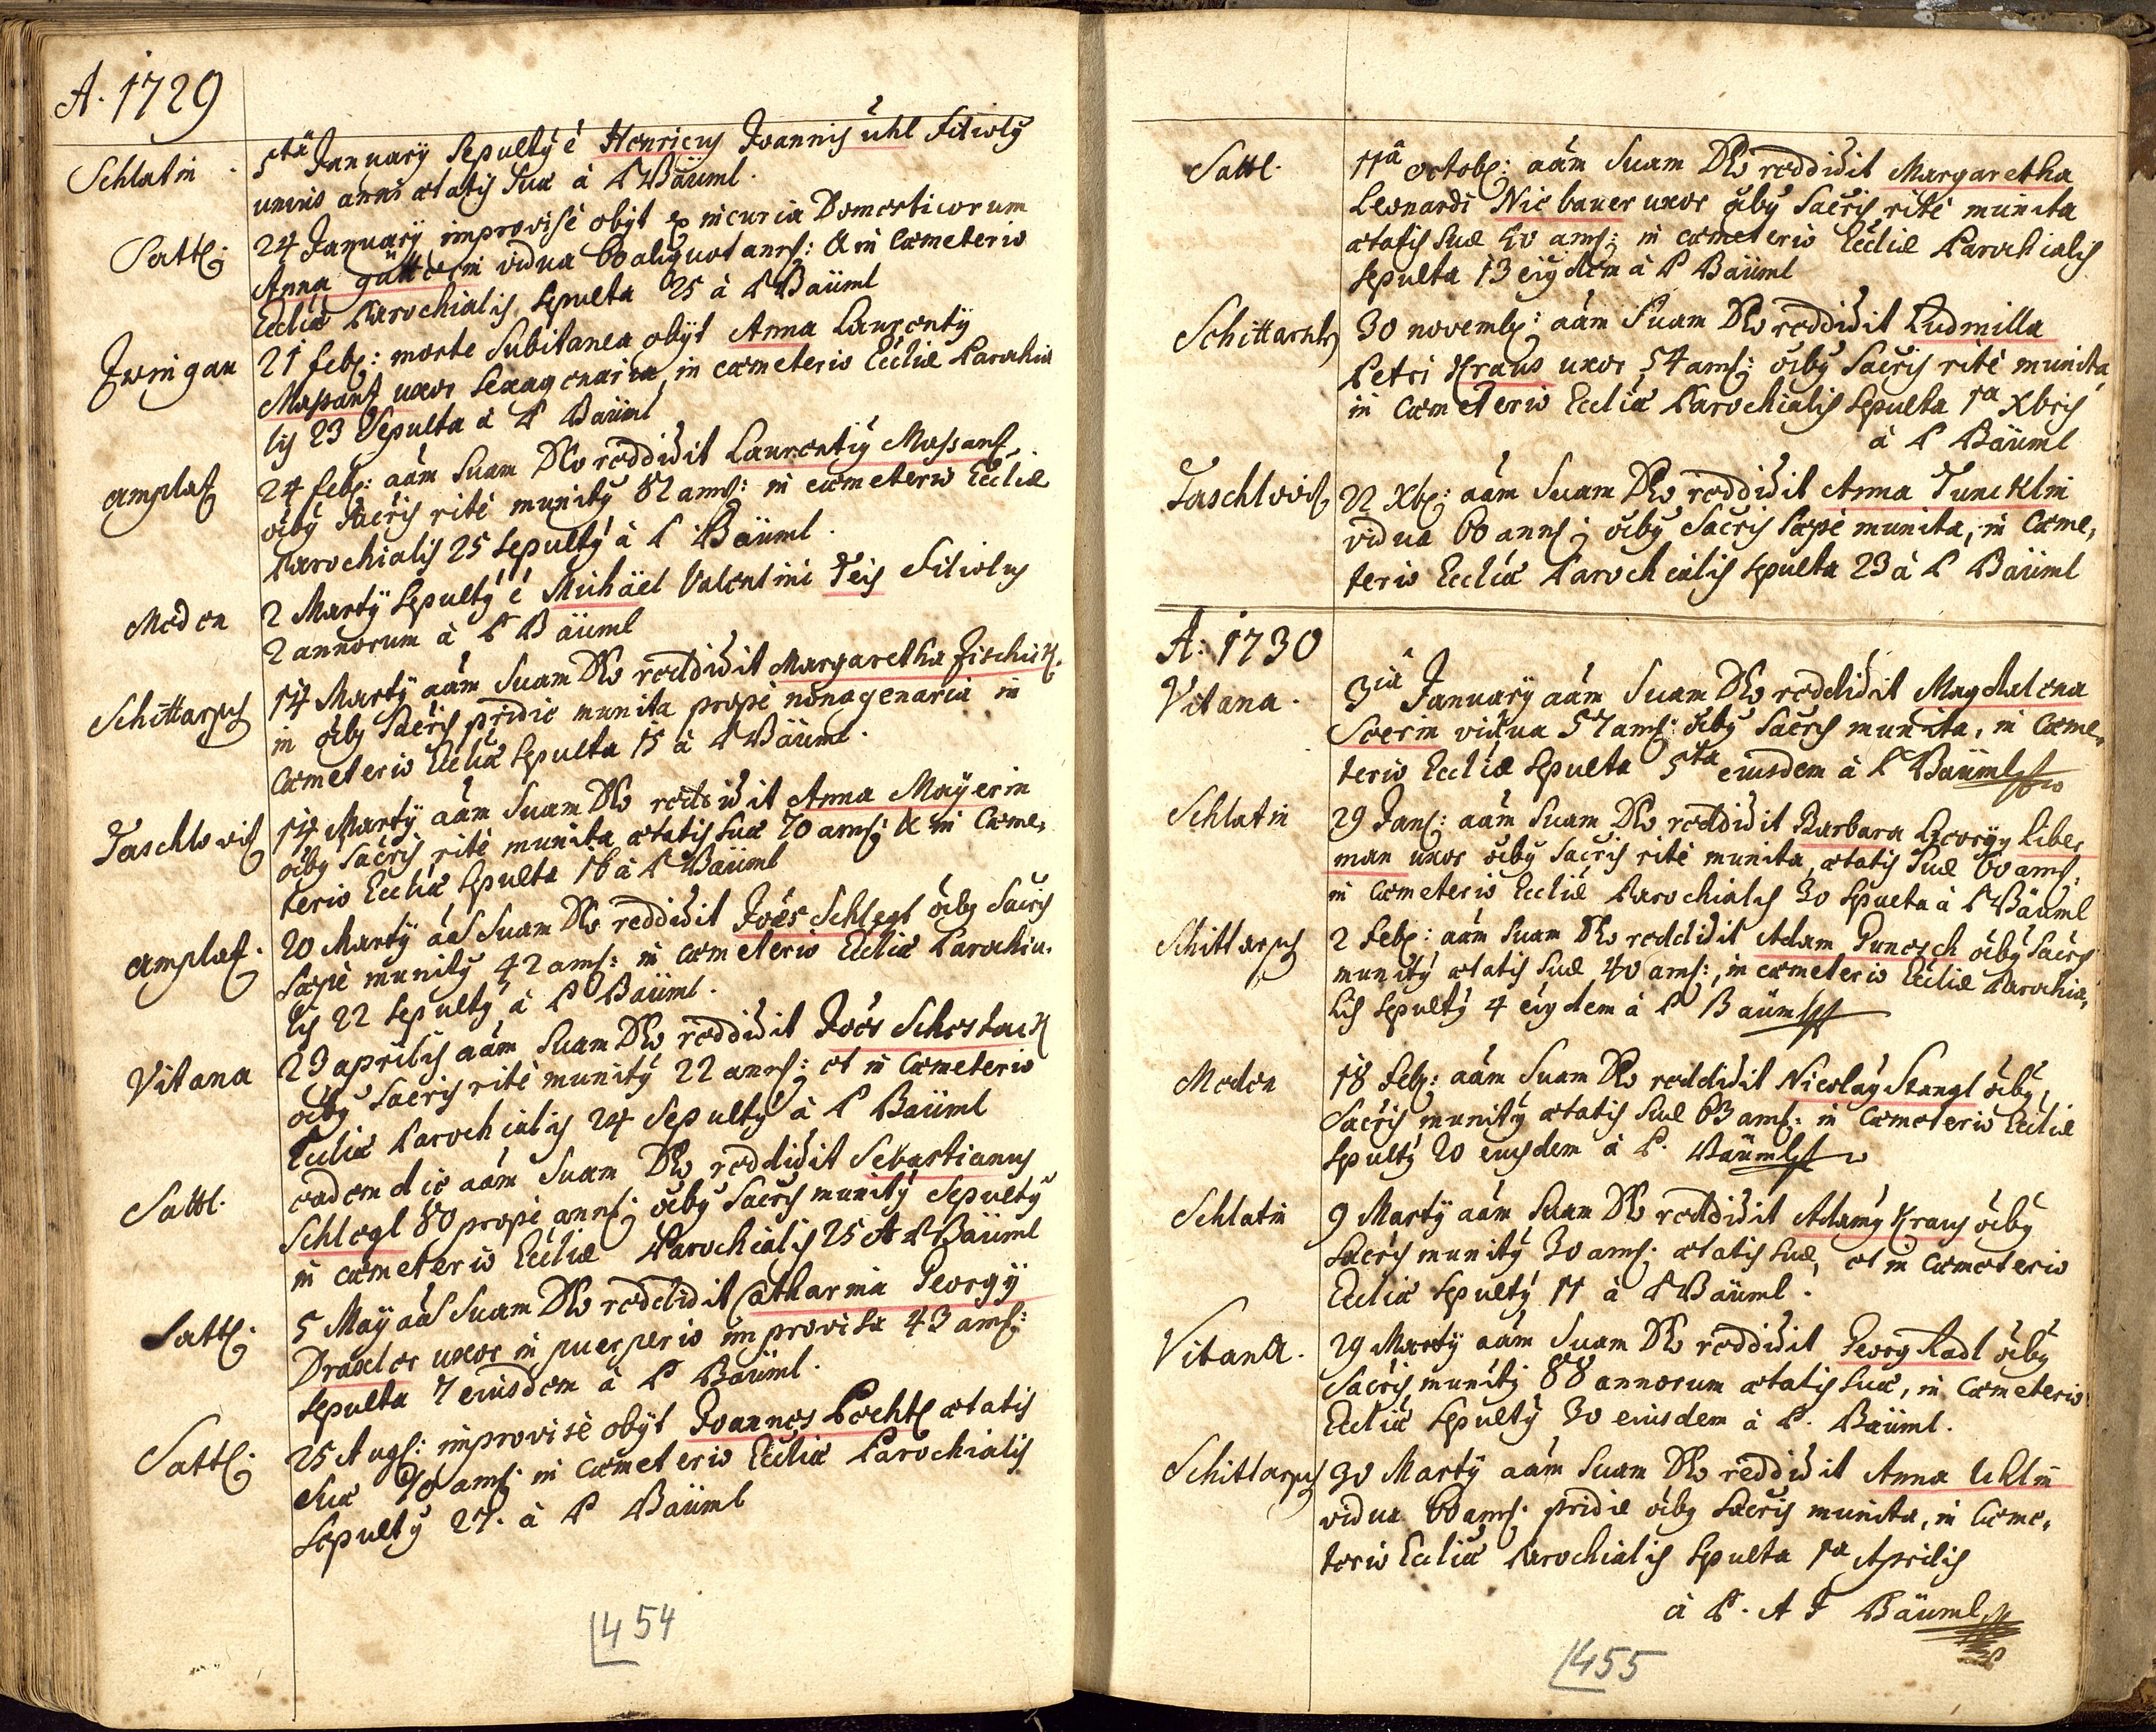 A. 1729
Schlatin. 5tâ Januarÿ Sepultÿ é Henricus Joannis ühl Filioly
unius anni ætatis Suæ à P Bäüml.
Sattl: 24 Januarÿ improvisè obÿt ex incuria Domesticorum
Anna güttlerin vidua 60 aliquot anns: & in Cœmeterio
Eccliæ Parochialis Sepulta 25 à P Bäüml
Zwingau 21 feb: morte Subitanea obÿt Anna Laurentÿ
Massant uxor Sexagenaria in cœmeterio Eccliæ Parochia
lis 23 Sepulta à P Bäüml
amplat 24 feb: aãm Suam Deo reddidit Laurentiÿ Massant
oibÿ Sacris ritè munitÿ 82 anns: in cœmeterio Eccliæ
Parochialis 25 Sepultÿ à P Bäüml.
Meden 2 Martÿ Sepultÿ é Michäel Valentini Teis Filiolus
2 annorum à P Bäüml
Schittarsch 14 Martÿ aãm Suam Deo reddidit Margaretha Fischik.
in oibÿ Sacris pridie munita propè nonagenaria in
Cœmeterio Eccliæ Sepulta 15 à P Bäüml.
Taschlowit 14 Martÿ aãm Suam Deo reddidit Anna Maÿerin
oibÿ Sacris ritè munita ætatis Suæ 70 anns: & in Cœme,
terio Eccliæ Sepulta 16 à P Bäüml
amplat. 20 Martÿ aãm Suam Deo reddidit Joẽs Schlegl oibÿ Sacris
Sæpè munitÿ 42 anns: in cœmeterio Eccliæ Parochia.
lis 22 Sepultÿ à P Bäüml.
Vitana 23 aprilis aãm Suam Deo reddidit Joẽs Schestack
oibÿ Sacris ritè munitÿ 22 anns: et in Cœmeterio
Eccliæ Parochialis 24 Sepultÿ à P Bäüml
Sattl. eadem die aãm Suam Deo reddidit Sebastianus
Schlegl 80 propè anns: oibÿ Sacris munitÿ Sepultÿ
in cœmeterio Eccliæ Parochialis 25 A P Bäüml
Sattl: 5 Maÿ aãm Suam Deo reddidit Catharina Georgÿ
Draxler uxor in puerperio improvisa 43 anns:
Sepulta 7 eiusdem à P Bäüml.
Sattl: 25 Augs: improvisè obÿt Joannes Pechtl ætatis
Suæ 70 anns: in Cœmeterio Eccliæ Parochialis
Sepultÿ 27. à P Bäüml
454
Sattl. 11â octob: aãm Suam Deo reddidit Margaretha
Leonardi Nic bauer uxor oibÿ Sacris ritè munita
ætatis Suæ 40 anns: in cœmeterio Eccliæ Parochialis
Sepulta 13 eiÿdem à P Bäüml
Schittarsch 30 novemb: aãm Suam Deo reddidit Ludmilla
Petri Kraus uxor 54 anns: oibÿ Sacris ritè munita,
in Cœmeterio Eccliæ Parochialis Sepulta 1a Xbris
à P Bäüml
Taschlowit 22 Xb: aãm Suam Deo reddidit Anna Tuncklin
vidua 60 anns: oibÿ Sacris Sæpè munita, in Cœme,
terio Eccliæ Parochialis Sepulta 23 à P Bäüml
A: 1730
Vitana. 3iâ Januarÿ aãm Suam Deo reddidit Magdalena
Soerin vidua 57 anns: oibÿ Sacris munita, in Cœme,
terio Eccliæ Sepulta 5ta eiusdem à P Bäüml
Schlatin 29 Jans: aãm Suam Deo reddidit Barbara Georgÿ Liber
man uxor oibÿ Sacris ritè munita, ætatis Suæ 60 anns:
in Cœmeterio Eccliæ Parochialis 30 Sepulta à P Bäüml
Schittarsch 2 Feb: aãm Suam Deo reddidit Adam Punesch oibÿ Sacris
munitÿ ætatis Suæ 40 anns:, in cœmeterio Eccliæ Parochia,
lis Sepultÿ 4 eiÿdem à P Bäüml
Meden 18 Feb: aãm Suam Deo reddidit Nicolaÿ Stangl oibÿ
Sacris munitÿ ætatis Suæ 63 anns: in Cœmeterio Eccliæ
Sepultÿ 20 eiusdem à P. Bäüml
Schlatin 9 Martÿ aãm Suam Deo reddidit Adamÿ Kraus oibÿ
Sacris munitÿ 30 anns: ætatis Suæ, et in Cœmeterio
Eccliæ Sepultÿ 11 à P Bäüml.
Vitana. 29 Martÿ aãm Suam Deo reddidit Georg Radl oibÿ
Sacris munitÿ 88 annorum ætatis Suæ, in Cœmeterio
Eccliæ Sepultÿ 30 eiusdem à P. Bäüml.
Schittarsch 30 Martÿ aãm Suam Deo reddidit Anna Uhlin
vidua 60 anns: pridie oibÿ Sacris munita, in Cœme,
terio Eccliæ Parochialis Sepulta 1a Aprilis
à P. A F Bäüml
455